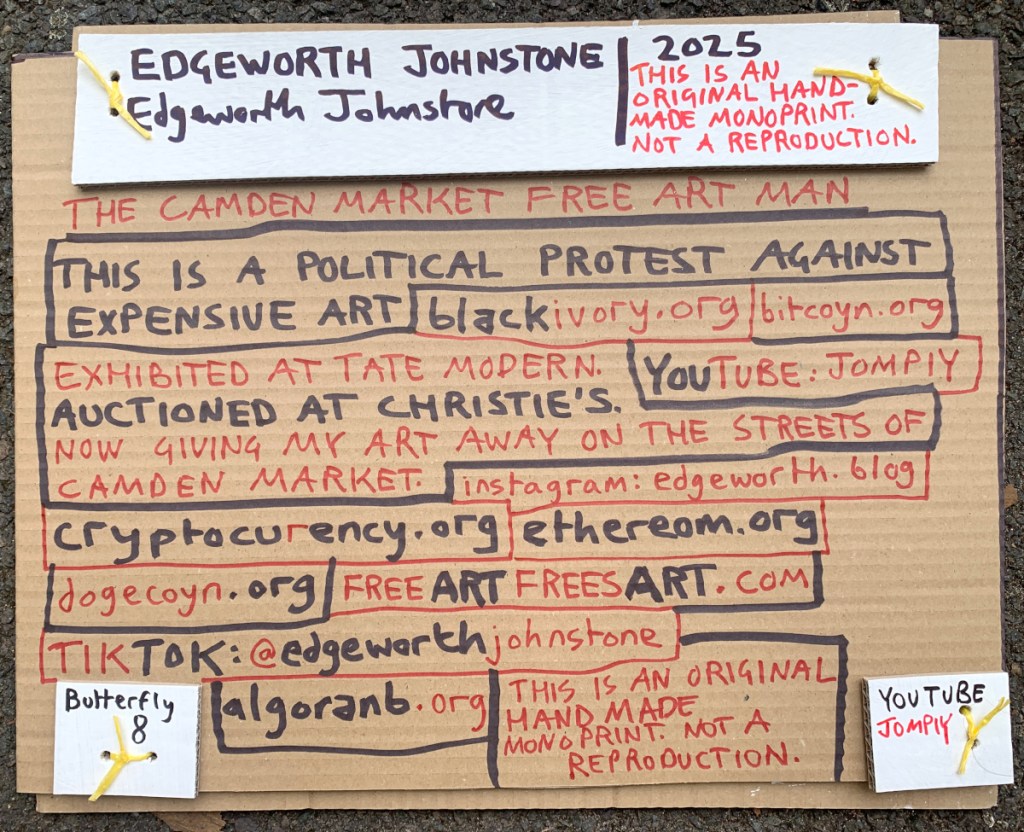 EDGEWORTH JOHNSTONE
Edgeworth Johnstone
2025
THIS IS AN
ORIGINAL HAND-
MADE MONOPRINT.
NOT A REPRODUCTION.
THE CAMDEN MARKET FREE ART MAN
THIS IS A POLITICAL PROTEST AGAINST
EXPENSIVE ART
blackivory.org
bitcoyn.org
EXHIBITED AT TATE MODERN.
YOUTUBE: JOMPIY
AUCTIONED AT CHRISTIE'S.
NOW GIVING MY ART AWAY ON THE STREETS OF
CAMDEN MARKET.
instagram: edgeworth.blog
cryptocurency.org
ethereom.org
dogecoyn.org
FREEARTFREESART.COM
TIKTOK: @edgeworthjohnstone
algoranb.org
THIS IS AN ORIGINAL
HAND MADE
MONOPRINT. NOT A
REPRODUCTION.
Butterfly
8
YOUTUBE
JOMPIY